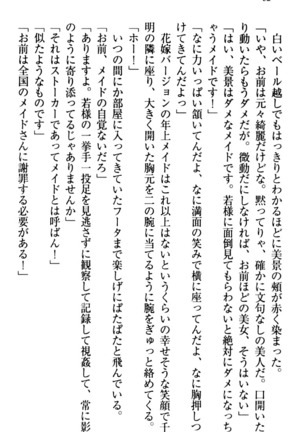 白いベール越しでもはっきりとわかるほどに、美景の頬が赤く染まった。
「いや、お前は元々綺麗だけどな。黙ってりゃ、確かに文句なしの美人だ。口開いた
り動いたらもうダメだが。微動だにしなければ、お前ほどの美女、そうはいない」
「はい、美景はダメなメイドです。若様に面倒見てもらわないと絶対にダメになっち
ゃうメイドです！」
「なに力いっぱい頷いてんだよ、なに満面の笑みで横に座ってんだよ、なに胸押しつ
けてきてんだよっ」
花嫁バージョンの年上メイドはこれ以上はないというくらいの幸せそうな笑顔で千
明の隣に座り、大きく開いた胸元を二の腕に当てるように腕をぎゅっと絡めてくる。
「ホー！」
いつの間にか部屋に入ってきていたフータまで楽しげにばたばたと飛んでいる。
「お前、メイドの自覚ないだろ」
「ありますよ。若様の一挙手一投足を見逃さずに観察して記録して視姦して、常に影
のように寄り添ってるじゃありませんか」
「それはストーカーであってメイドとは呼ばん！」
「似たようなものです」
「お前は全国のメイドさんに謝罪する必要がある！」